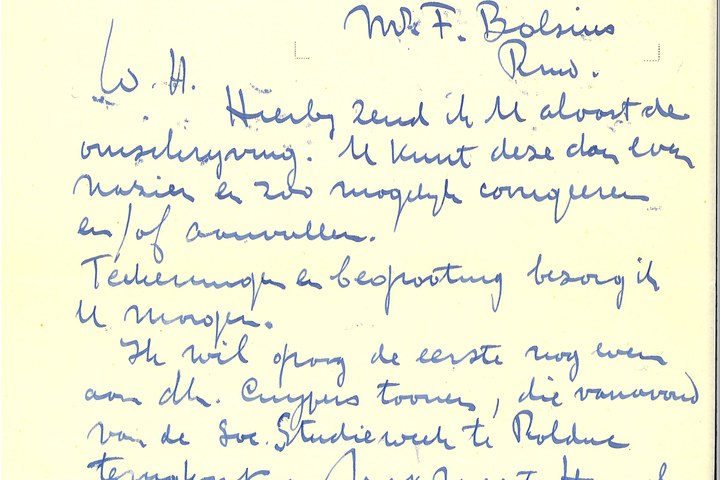 Mr F. Bolsius
Rmd.
W. H.
Hierby zend ik U alvast de
omschryving. U kunt deze dan even
nazien en zoo mogelyk corrigeeren
en/of aanvullen.
Teekeningen en begrooting bezorg ik
U morgen.
Ik wil graag de eerste nog even
aan dhr. Cuypers toonen, die vanavond
van de Soc. Studieweek te Rolduc
terugkomt